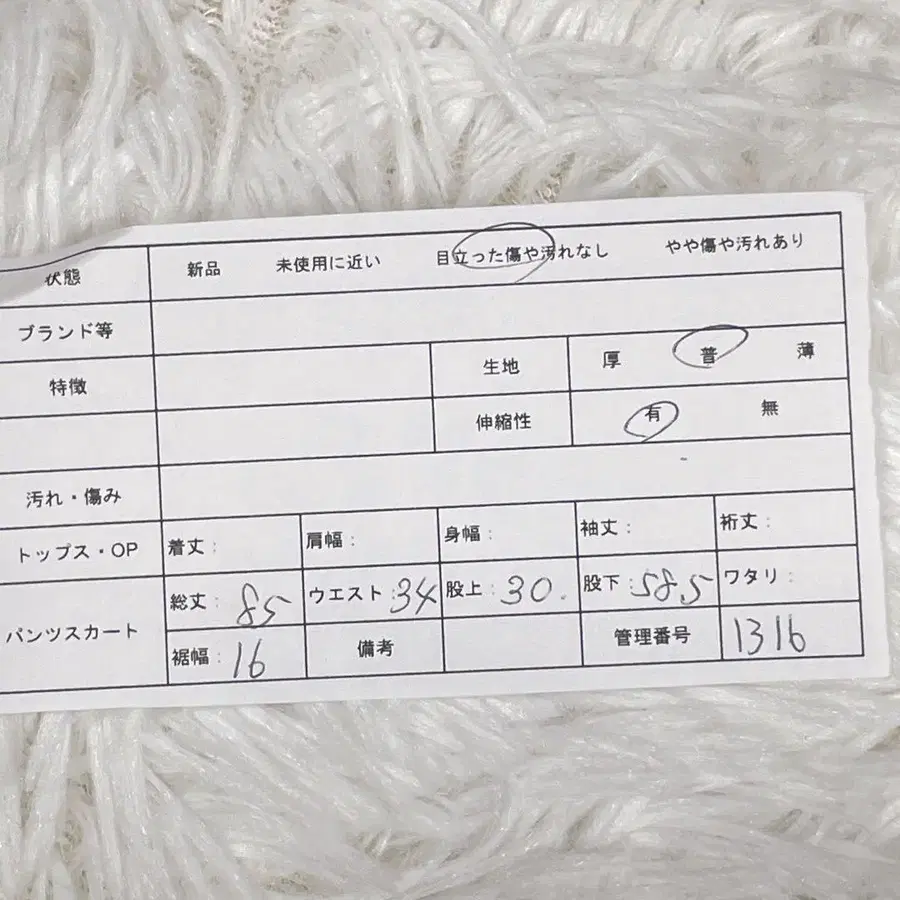 状態 新品 未使用に近い 目立った傷や汚れなし やや傷や汚れあり
ブランド等
特徴 生地 厚 普 薄
伸縮性 有 無
汚れ・傷み
トップス・OP 着丈: 肩幅: 身幅: 袖丈: 裄丈:
パンツスカート 総丈: 85 ウエスト: 34 股上: 30. 股下: 58.5 ワタリ:
裾幅: 16 備考 管理番号 1316